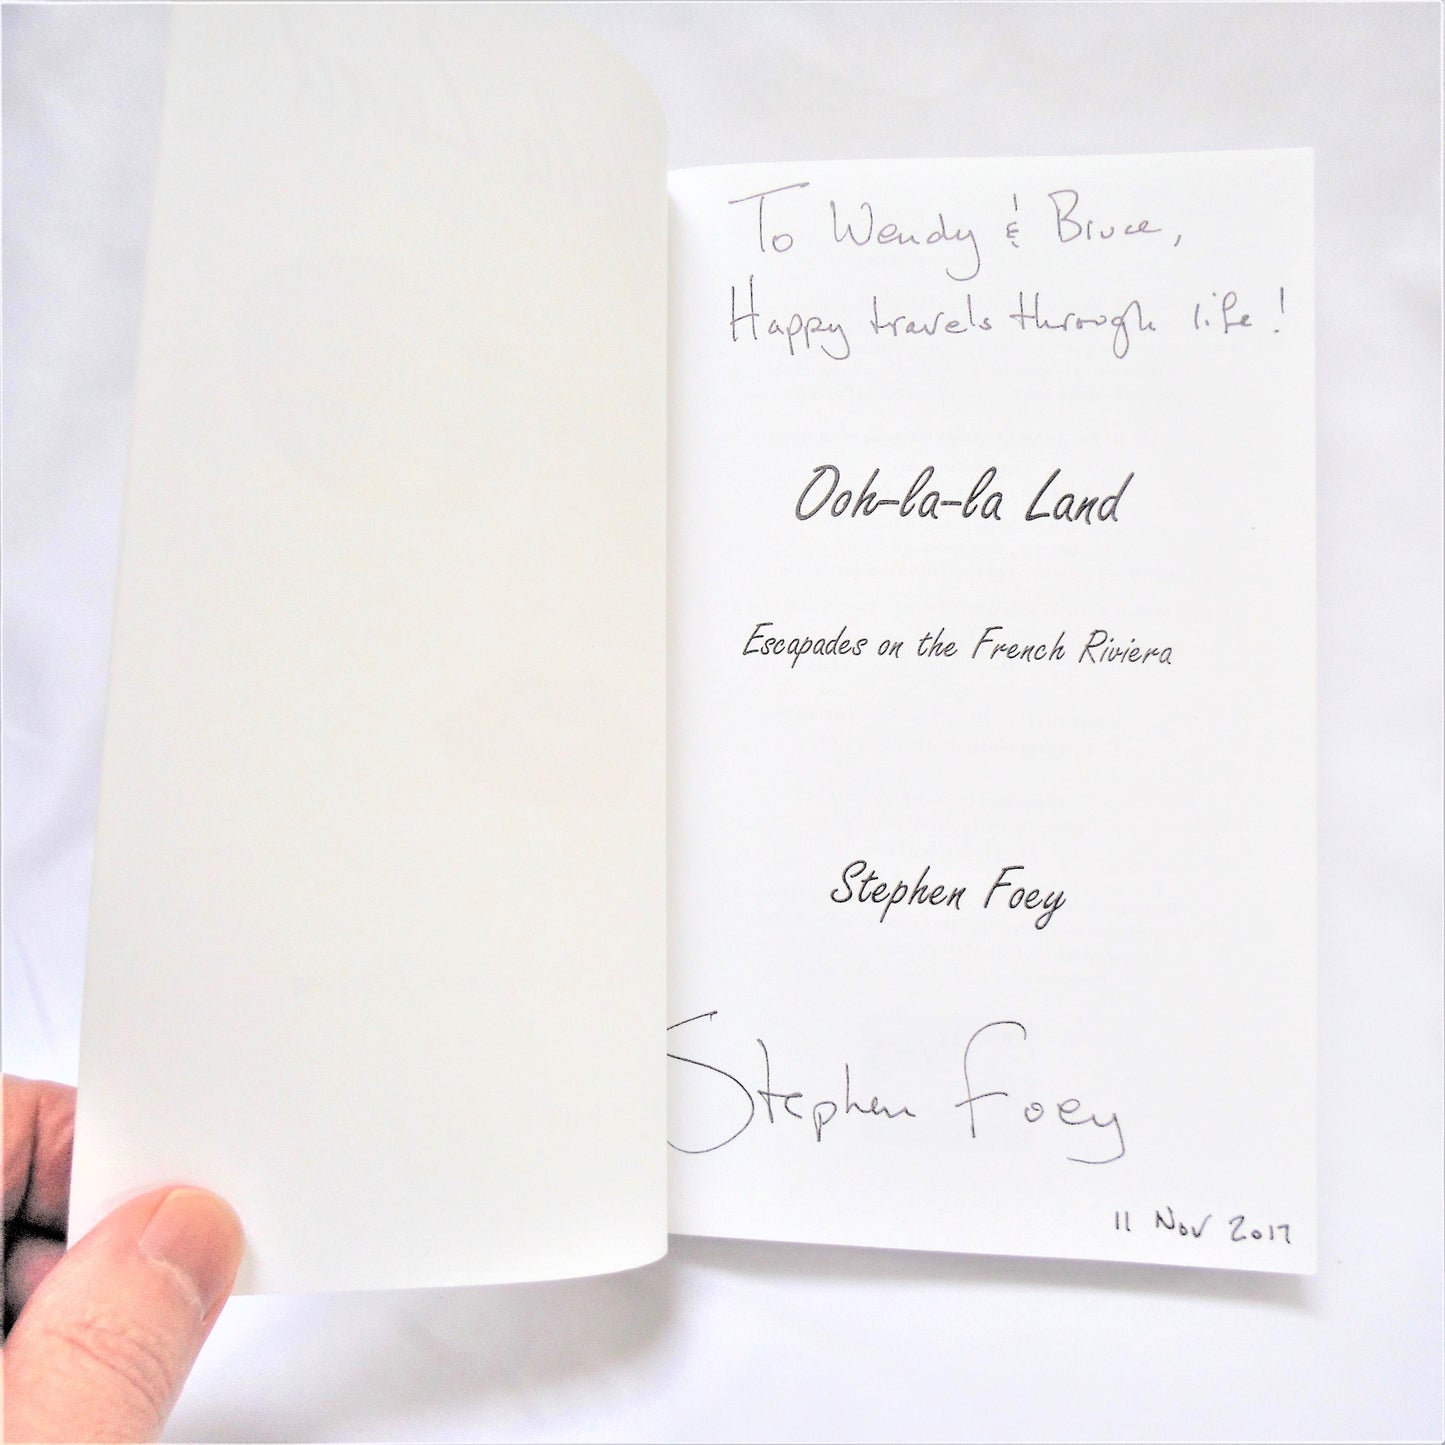 To Wendy & Bruce,
Happy travels through life!
Ooh-la-la Land
Escapades on the French Riviera
Stephen Foey
Stephen Foey
11 Nov 2017